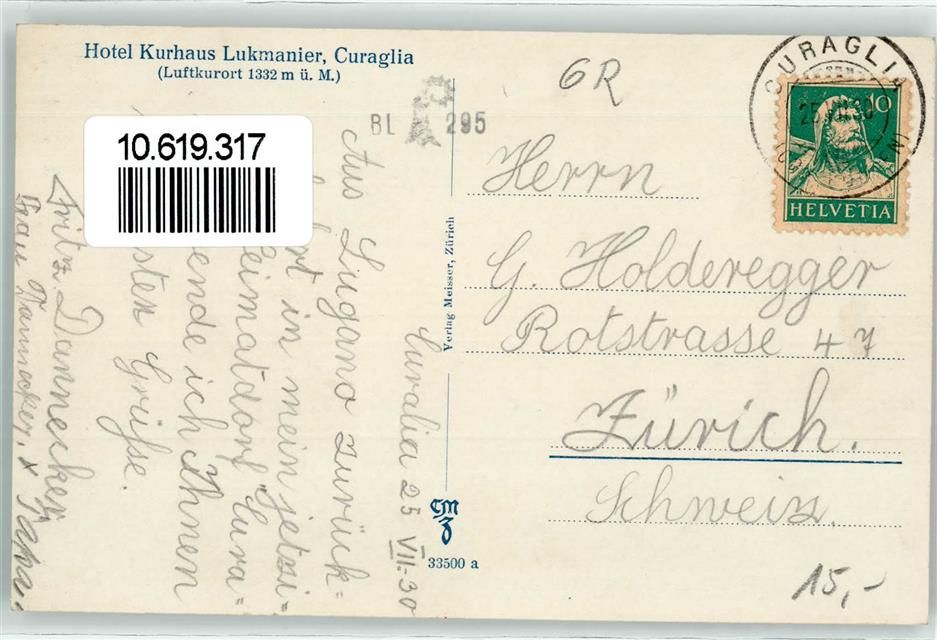 Hotel Kurhaus Lukmanier, Curaglia
(Luftkurort 1332 m ü. M.)
10.619.317
BL 295
6R
CURAGLIA
10
HELVETIA
Herrn
G. Holderegger
Rotstrasse 47
Zürich.
Schweiz.
15,-
Verlag Meisser, Zürich
CMZ
33500 a
Curalia 25 VII.-30
Aus Lugano zurück-
in mein jetzi-
eimatdorf Cura=
ende ich Ihnen
sten Grüsse.
Fritz Dannecker
Frau Dannecker.